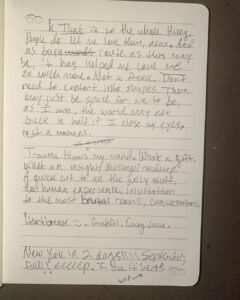 That is so the whole thing.
People do let me love them, now. And
as backwards route as this may
be, it has helped me love me
so much more. Not a person. Don't
need to contort into shapes. There
may just be space for me to be,
as I am, the world may not
crack in half if I close my eyes,
rest a moment.
Trauma blows my mind. What a gift,
what an insight/challenge/roadmap.
A quick cut to all the juicy stuff,
the human experience, invitation
to the most brutal rooms, conversations.
Heartbreak Grateful. Every time.
New York in 2 days!!!! September,
fall!! eeeeep. I am